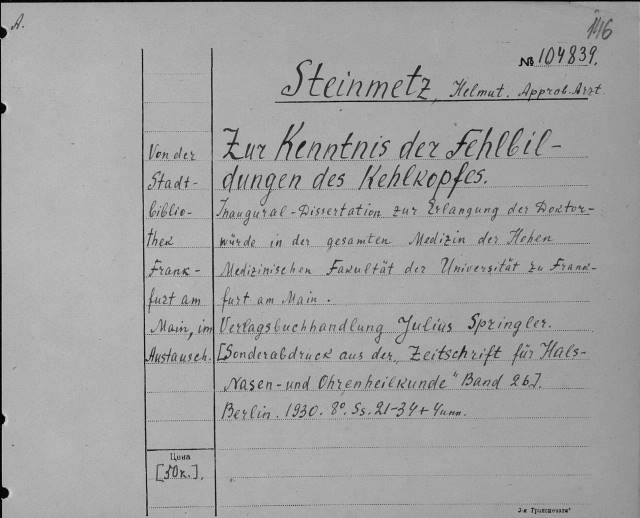 A.
146
№ 104839.
Steinmetz, Helmut. Approb. Arzt.
Zur Kenntnis der Fehlbil-
dungen des Kehlkopfes.
Inaugural-Dissertation zur Erlangung der Doktor-
würde in der gesamten Medizin der Hohen
Medizinischen Fakultät der Universität zu Frank-
furt am Main.
Verlagsbuchhandlung Julius Springler.
[Sonderabdruck aus der „Zeitschrift für Hals-
Nasen- und Ohrenheilkunde" Band 26].
Berlin. 1930. 8°. Ss. 21-34 + 4 unn.
Von der
Stadt-
biblio-
thek
Frank-
furt am
Main, im
Austausch.
Цена
[50к.].